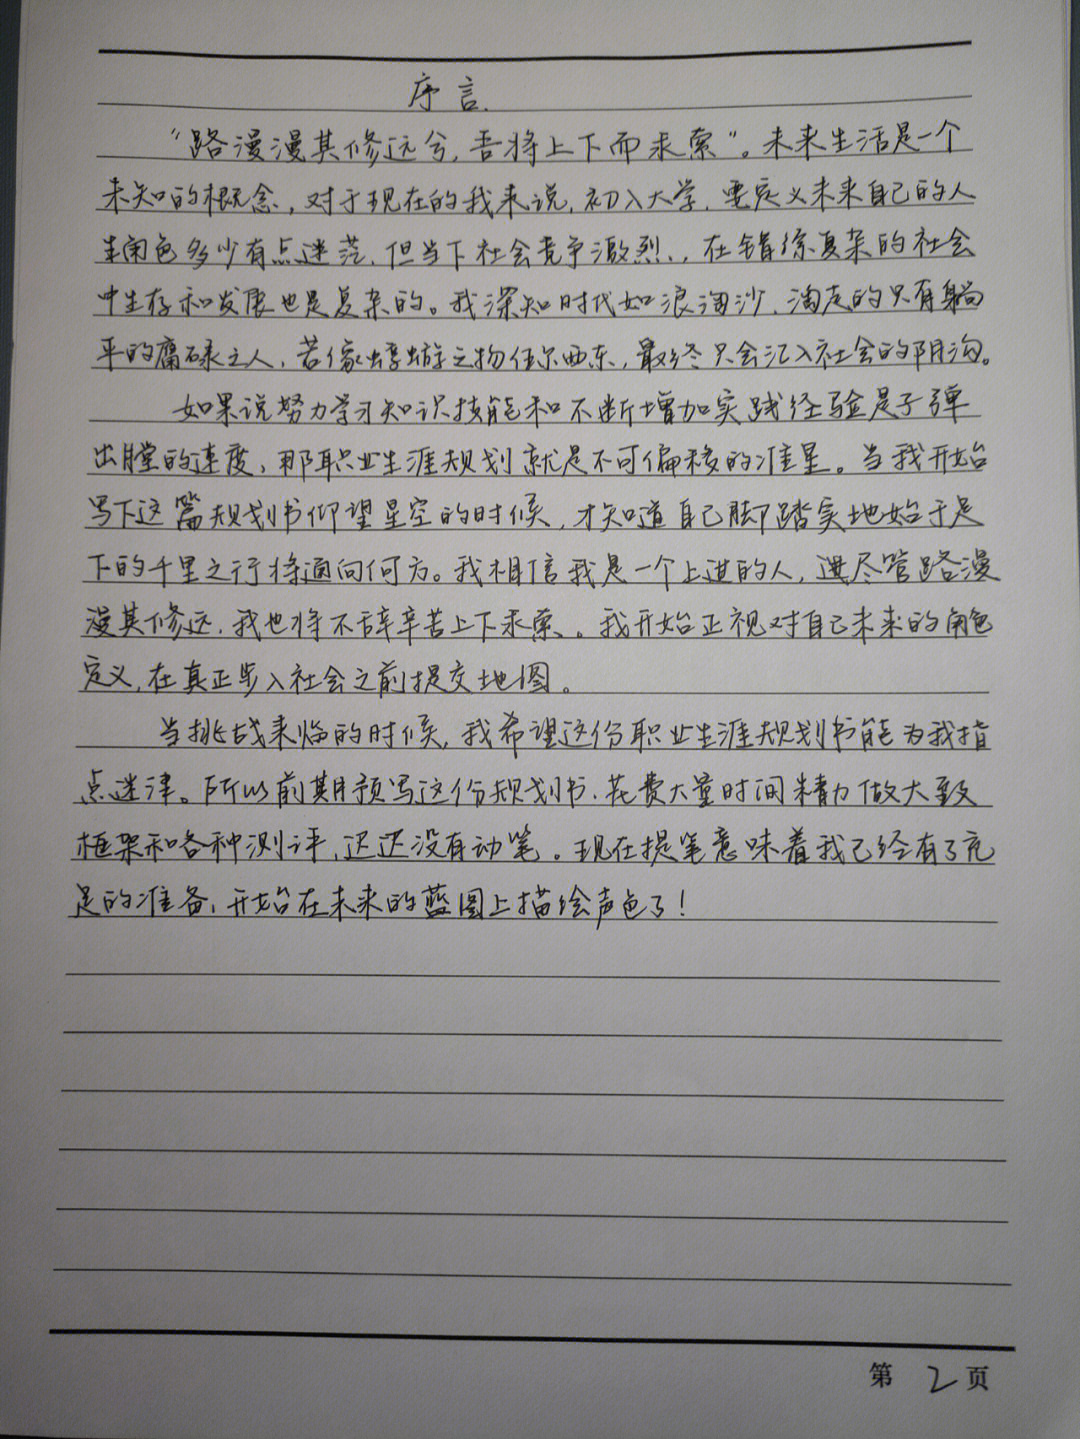 序言.
“路漫漫其修远兮,吾将上下而求索”。未来生活是一个
未知的概念,对于现在的我来说,初入大学,要定义未来自己的人
生角色多少有点迷茫,但当下社会竞争激烈、,在错综复杂的社会
中生存和发展也是复杂的。我深知时代如浪淘沙,淘走的只有躺
平的腐碌之人,若像蜉蝣之物任尔西东,最终只会汇入社会的阴沟。
如果说努力学习知识技能和不断增加实践经验是子弹
出膛的速度,那职业生涯规划就是不可偏移的准星。当我开始
写下这篇规划书仰望星空的时候,才知道自己脚踏实地始于足
下的千里之行将通向何方。我相信我是一个上进的人,进尽管路漫
漫其修远,我也将不辞辛苦上下求索、。我开始正视对自己未来的角色
定义,在真正步入社会之前提交地图。
当挑战来临的时候,我希望这份职业生涯规划书能为我指
点迷津。所以前期预写这份规划书,花费大量时间精力做大致
框架和各种测评,迟迟没有动笔。现在提笔意味着我已经有了充
足的准备,开始在未来的蓝图上描绘声色了!
第2页